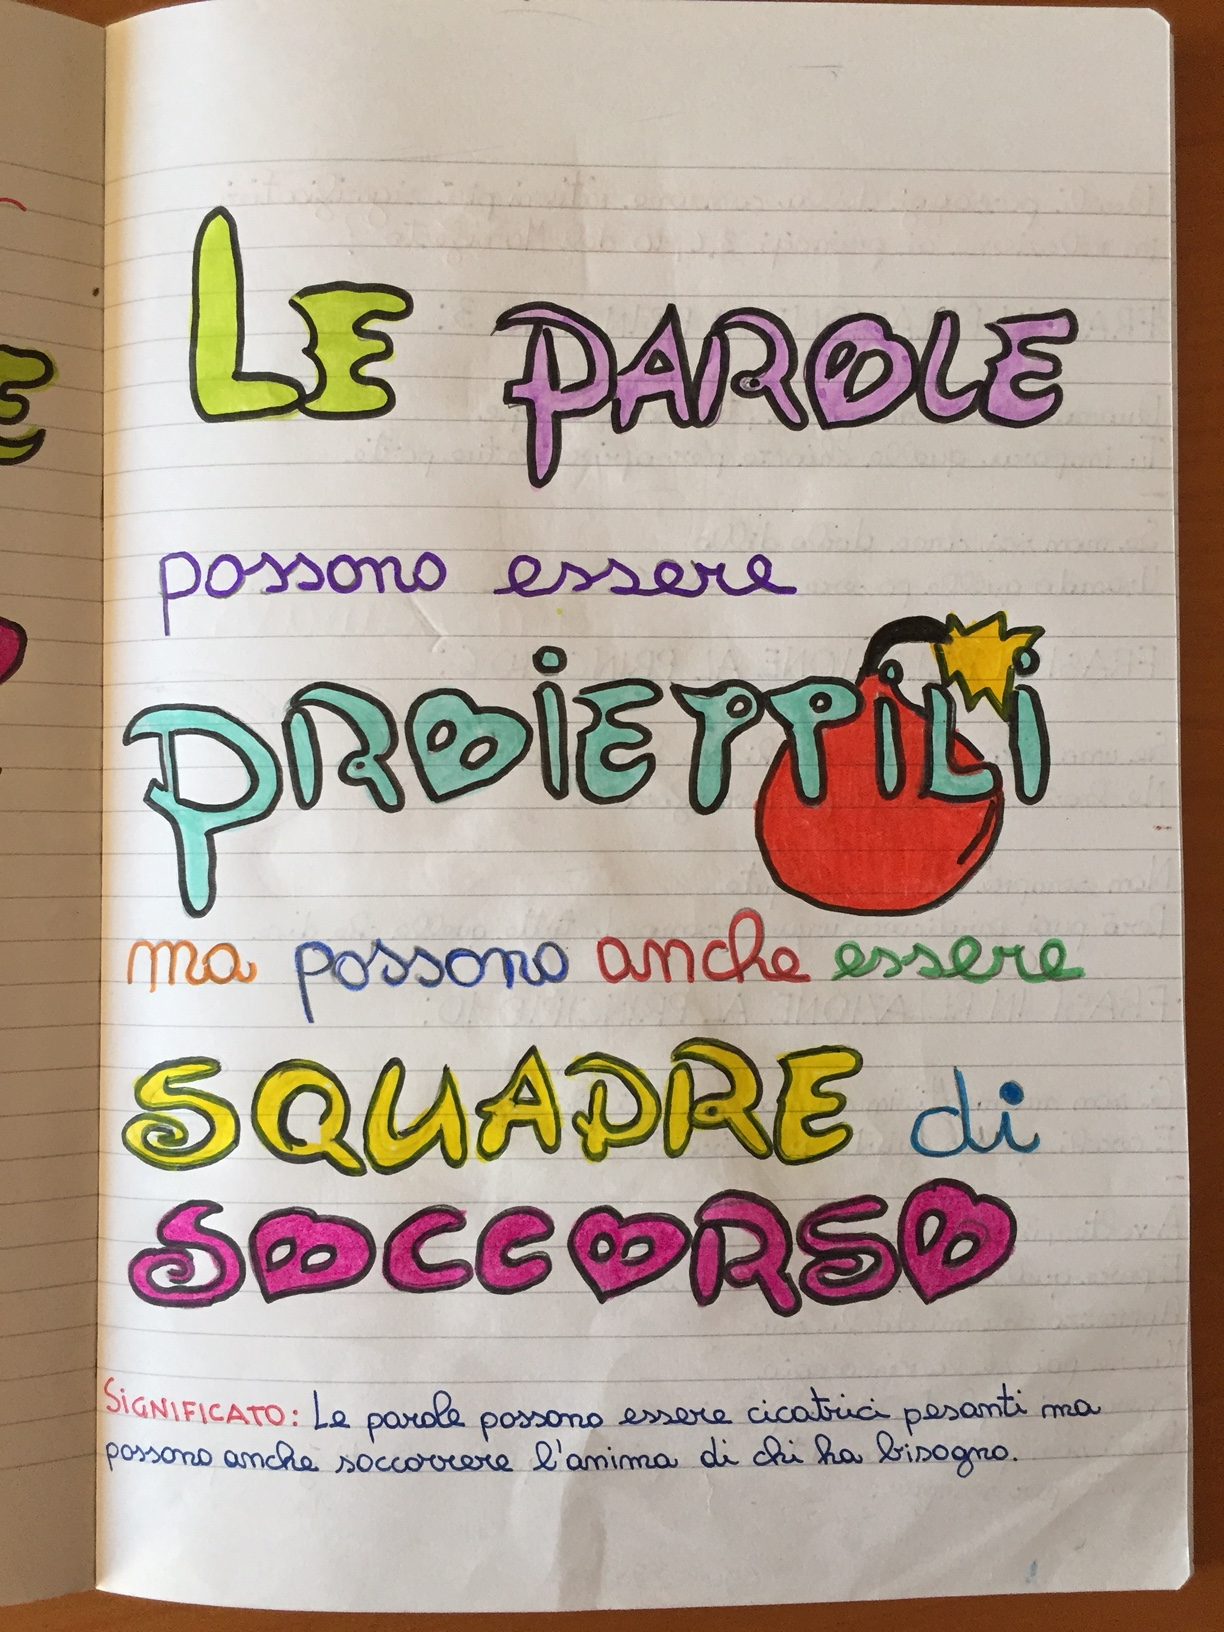 LE PAROLE
possono essere
PROIETTILI
ma possono anche essere
SQUADRE di
SOCCORSO
SIGNIFICATO: Le parole possono essere cicatrici pesanti ma
possono anche soccorrere l'anima di chi ha bisogno.